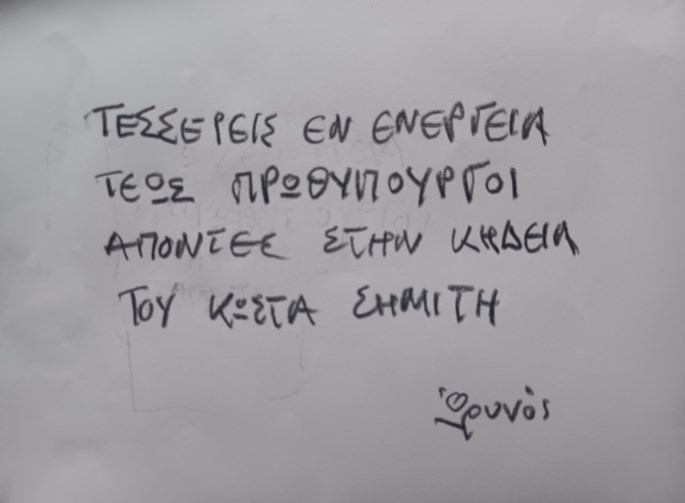 ΤΕΣΣΕΡΕΙΣ ΕΝ ΕΝΕΡΓΕΙΑ
ΤΕΩΣ ΠΡΩΘΥΠΟΥΡΓΟΙ
ΑΠΟΝΤΕΣ ΣΤΗΝ ΚΗΔΕΙΑ
ΤΟΥ ΚΩΣΤΑ ΣΗΜΙΤΗ